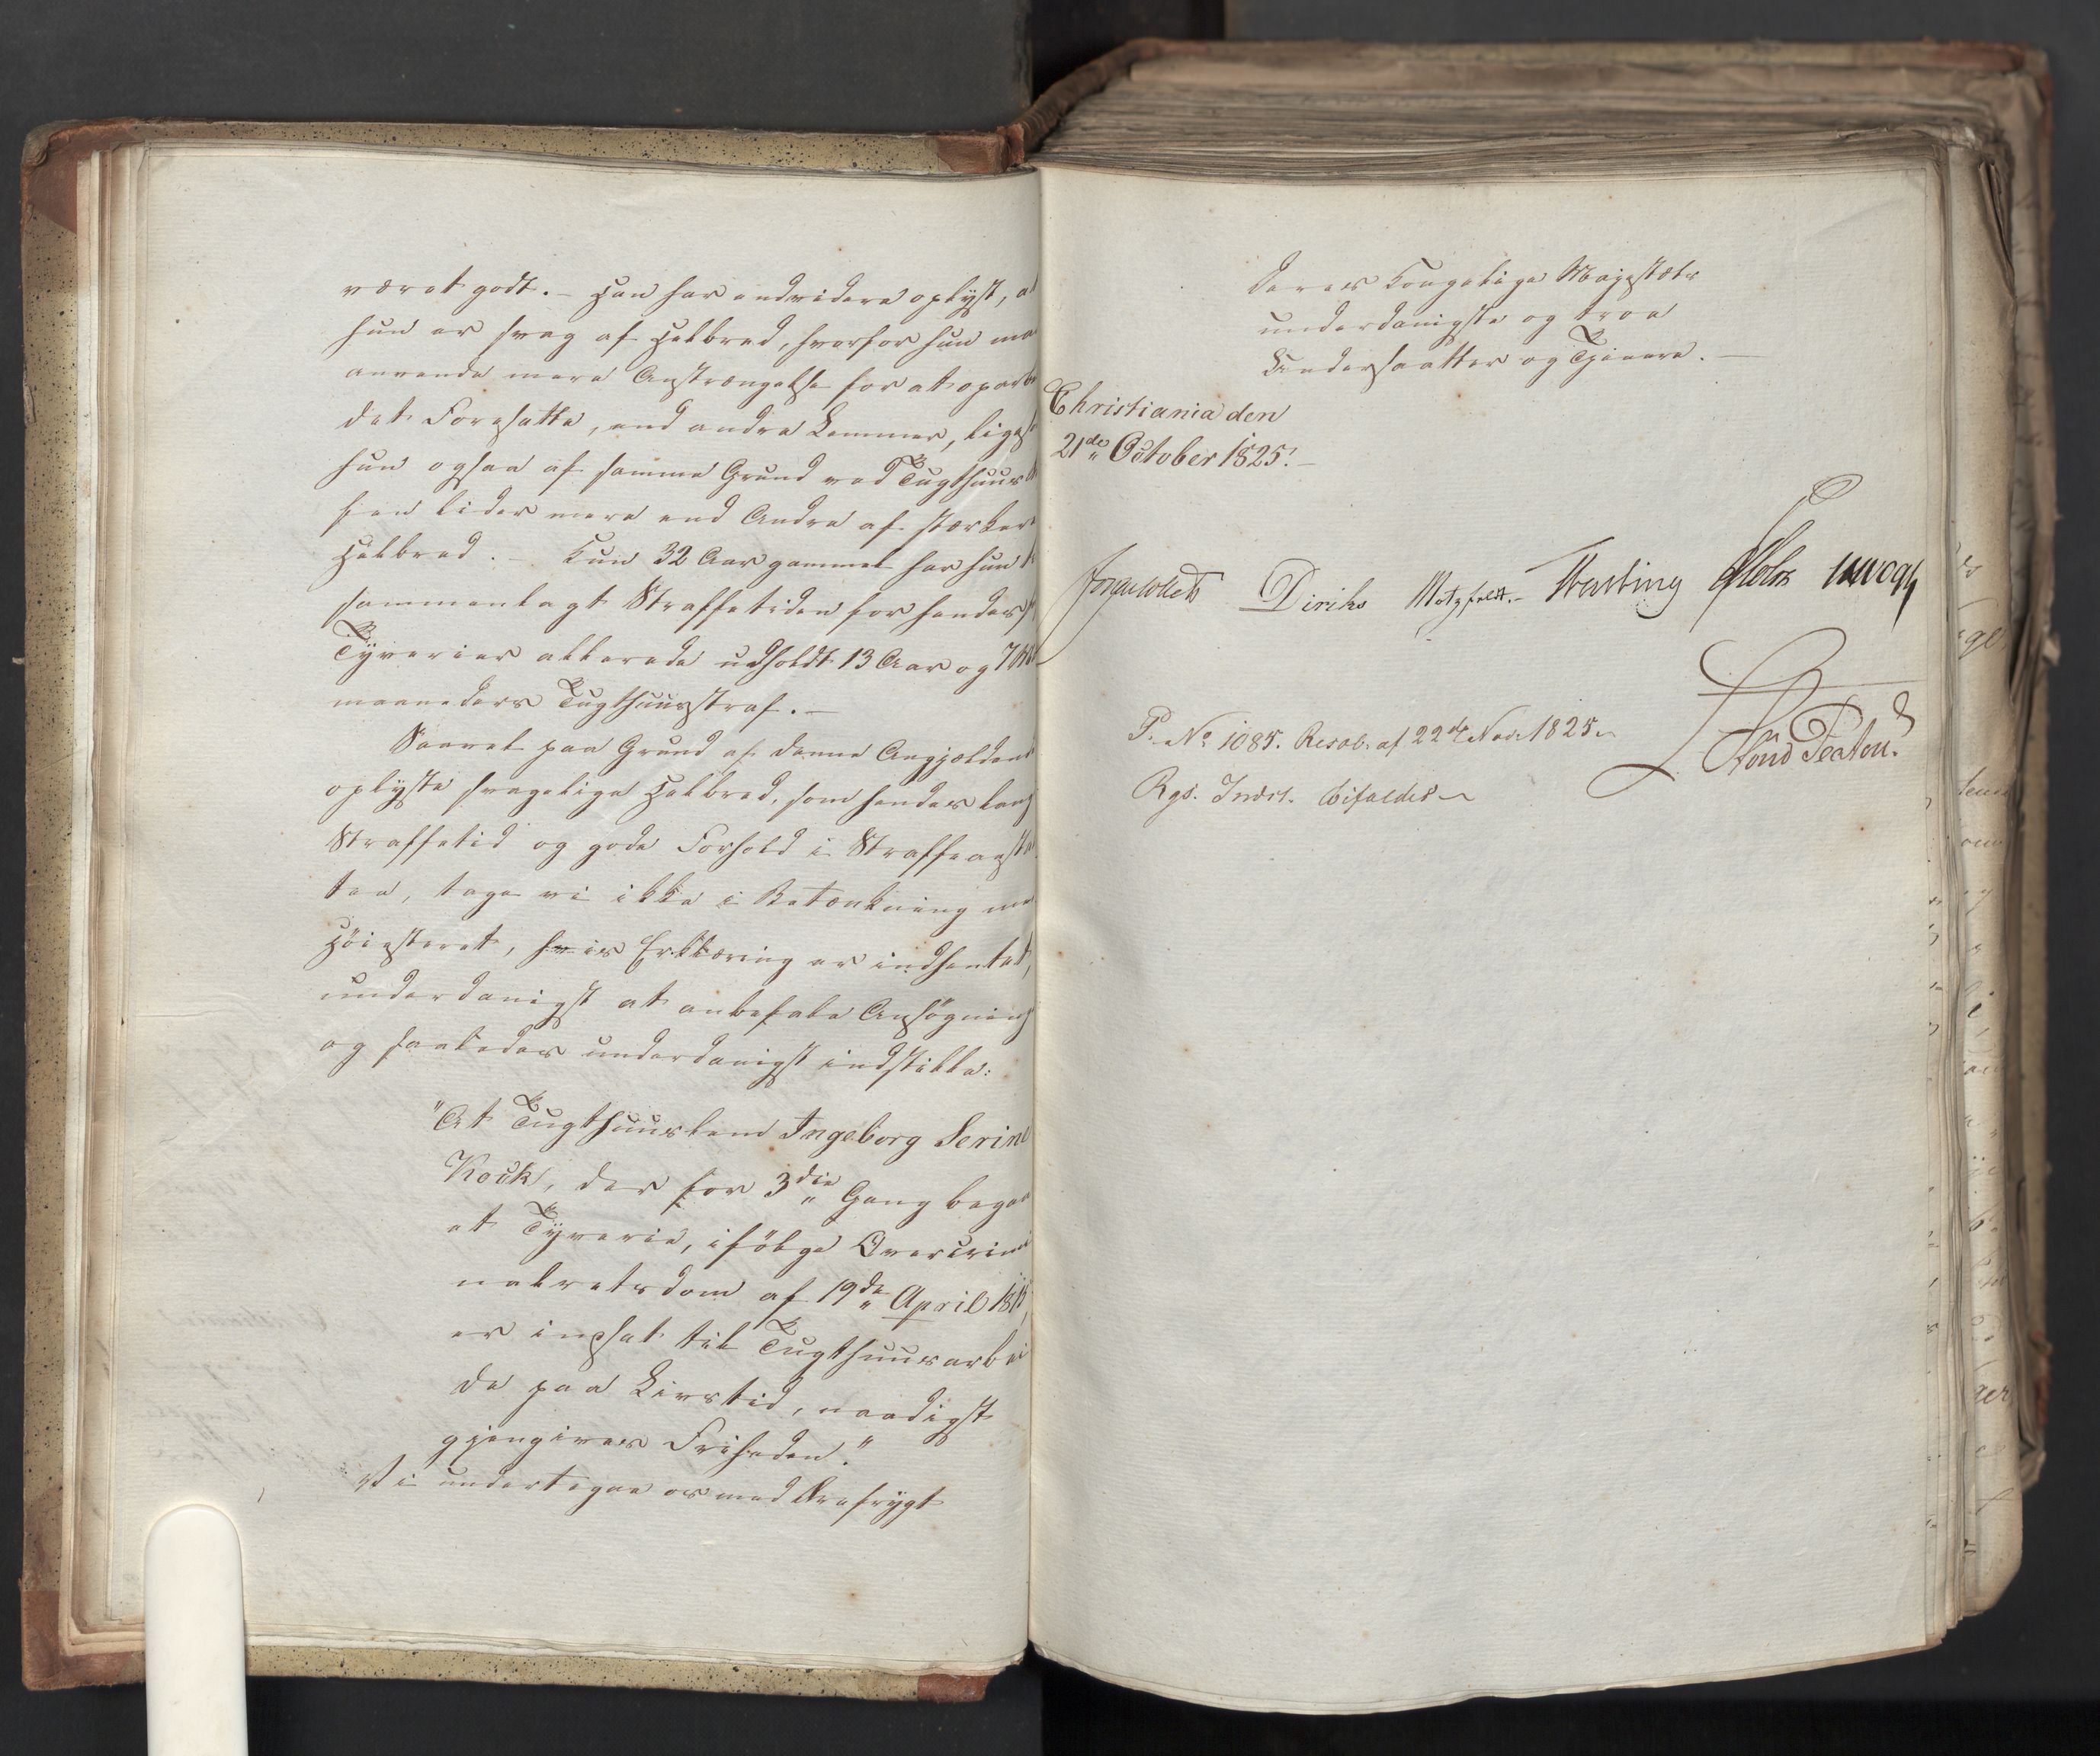 været godt. – Han har endvidere oplyst, at
hun er svag af Helbred, hvorfor hun maa
anvende mere Anstrængelse for at oparbei
det Foresatte, end andre Lemmer, ligesom
hun ogsaa af samme Grund ved Tugthuus
sen lider mere end Andre af stærkere
Helbred. – Kun 32 Aar gammel har hun
sammenlagt Straffetiden for hendes
Tyverier allerede udholdt 13 Aar og 7
maaneders Tugthuusstraf. –
Saavel paa Grund af denne Angjældendes
oplyste svagelige Helbred, som hendes lange
Straffetid og gode Forhold i Straffeanstal
ten, tage vi ikke i Betænkning med
Höiesteret, hvis Erklæring er indhentet,
underdanigst at anbefale Ansögningen
og saaledes underdanigst indstille:
"At Tugthuuslem Ingeborg Serine
Kock, der for 3die Gang begaa
et Tyverie, ifölge Overcrimi
nalretsdom af 19de April 1815,
er indsat til Tugthuusarbei
de paa Livstid, naadigst
gjengives Friheden."
Vi undertegne os med Ærefrygt
Deres Kongelige Majestæts
underdanigste og troe
Undersaatter og Tjenere. –
Christiania den
21de October 1825. –
Diriks Motzfeldt. – Holst
P. No 1085. Resol. af 22de Nov. 1825.
Rgs. Indst. bifaldes